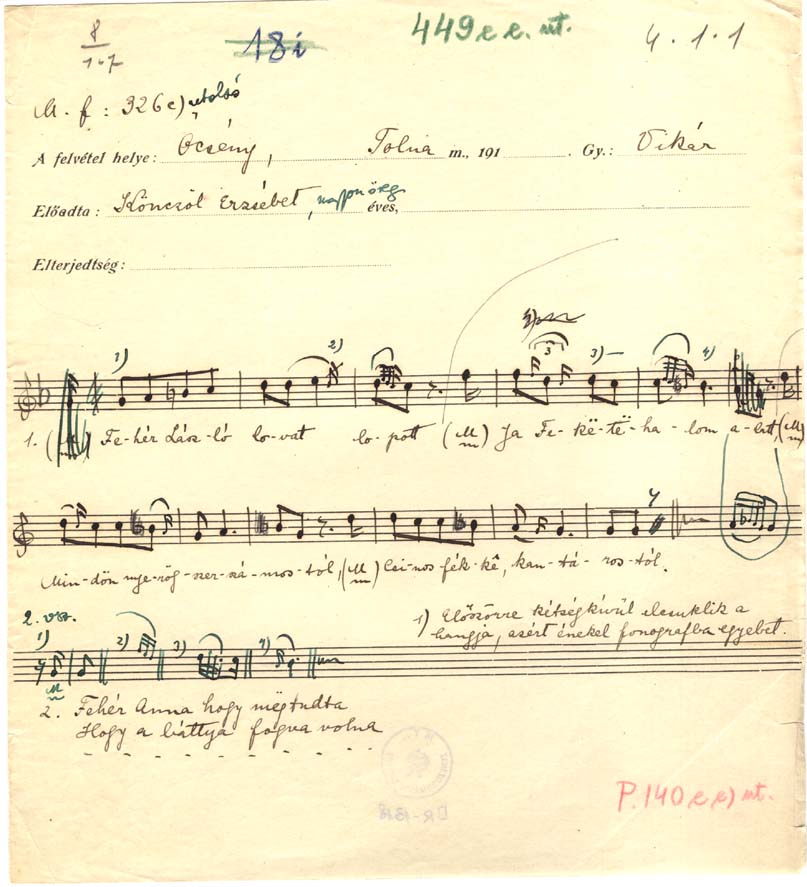 8/167 18i 449 e e. ut. 4.1.1
M. f: 326c) utolsó
A felvétel helye: Öcsény, Tolna m., 191 . Gy.: Vikár
Előadta: Könczöl Erzsébet, nagyon öreg éves,
Elterjedtség:
1) 2) 3 3) 4)
1. (M) Fe-hér Lász-ló lo-vat lo-pott (M) Ja Fe-kë-të-ha-lom a-latt, (M)
Min-dön nye-rög-szer-szá-mos-tól, (M) kan-tá-ros-tól.
2. vsz.
1) Előszörre kétségkívül elcsuklik a
hangja, azért énekel fonografba egyebet.
1) 2) 3) 4)
M
2. Fehér Anna hogy mëgtudta
Hogy a báttya fogva volna
P. 140 e e) ut.